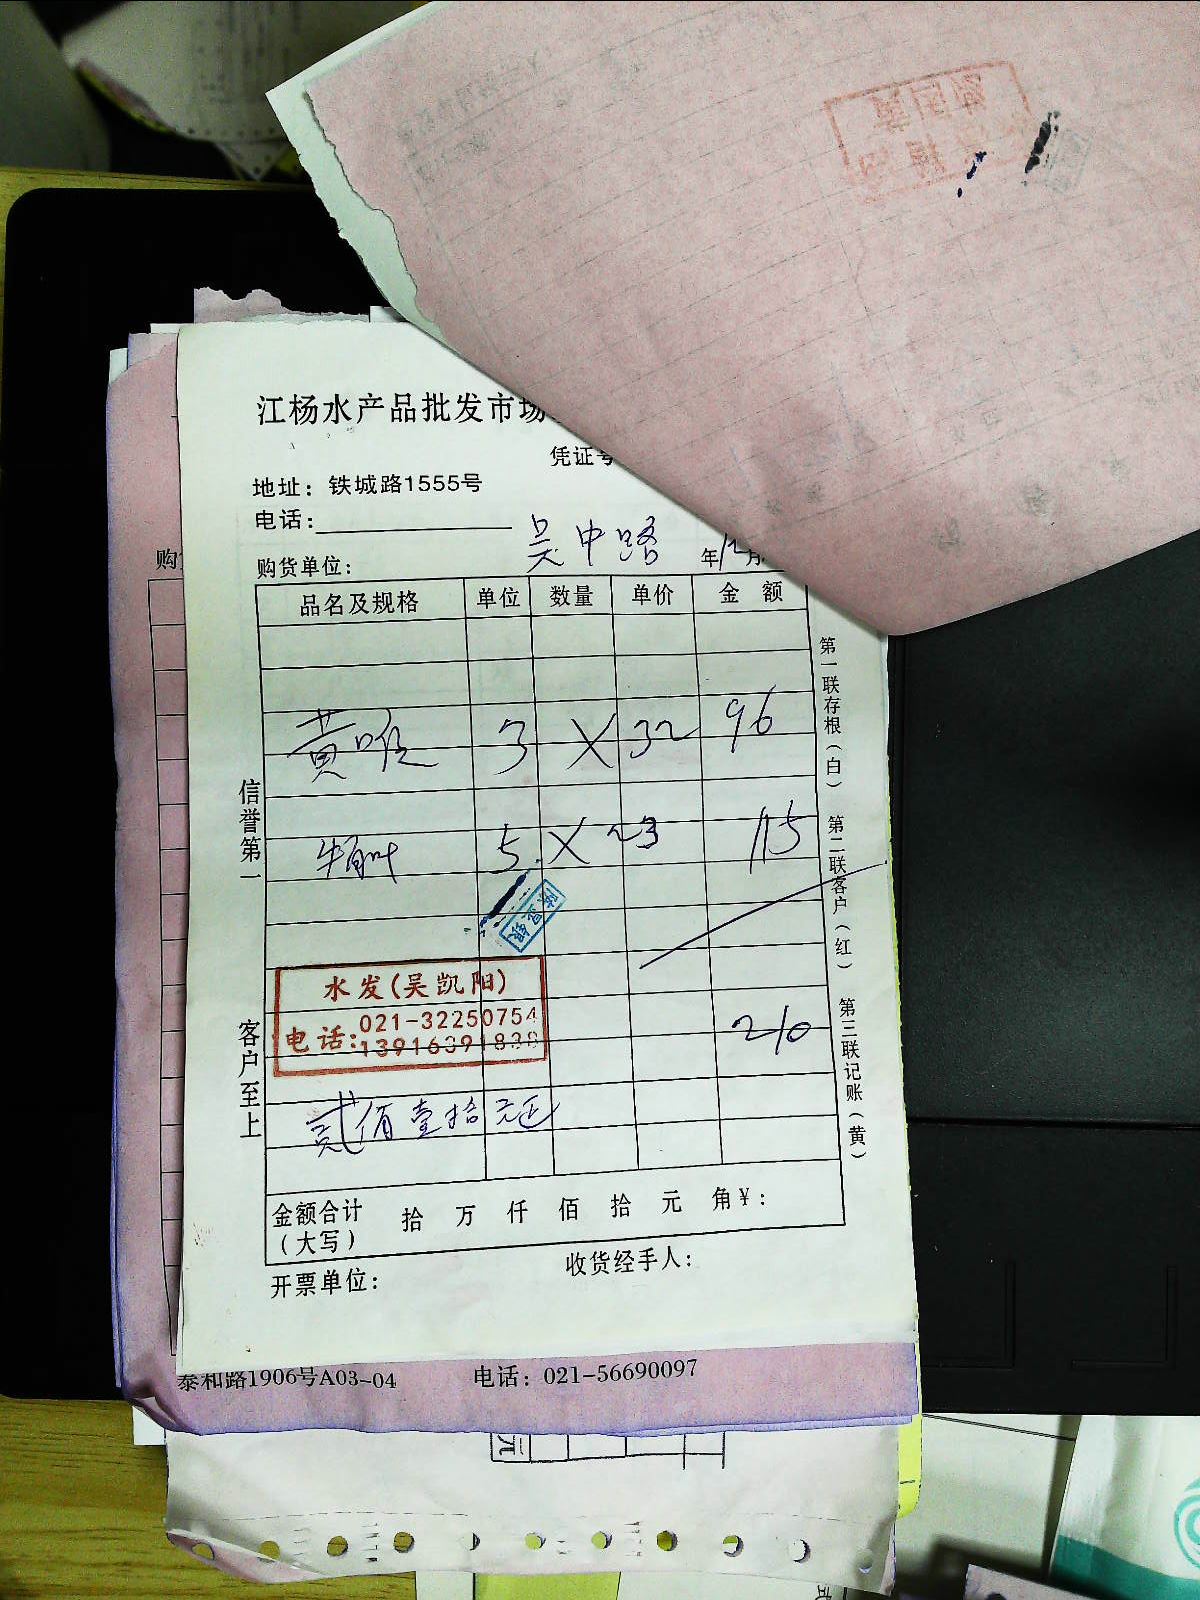 江杨水产品批发市场
凭证号
地址：铁城路1555号
电话：
购货单位： 吴中路 年12月
品名及规格 单位 数量 单价 金 额
黄喉 3 X 32 96
牛百叶 5 X 23 115
水发(吴凯阳)
电话:021-32250754
13916391838
210
贰佰壹拾元正
金额合计 拾 万 仟 佰 拾 元 角¥：
（大写）
开票单位： 收货经手人：
信誉第一 客户至上
第一联存根（白） 第二联客户（红） 第三联记账（黄）
购
泰和路1906号A03-04 电话：021-56690097
元